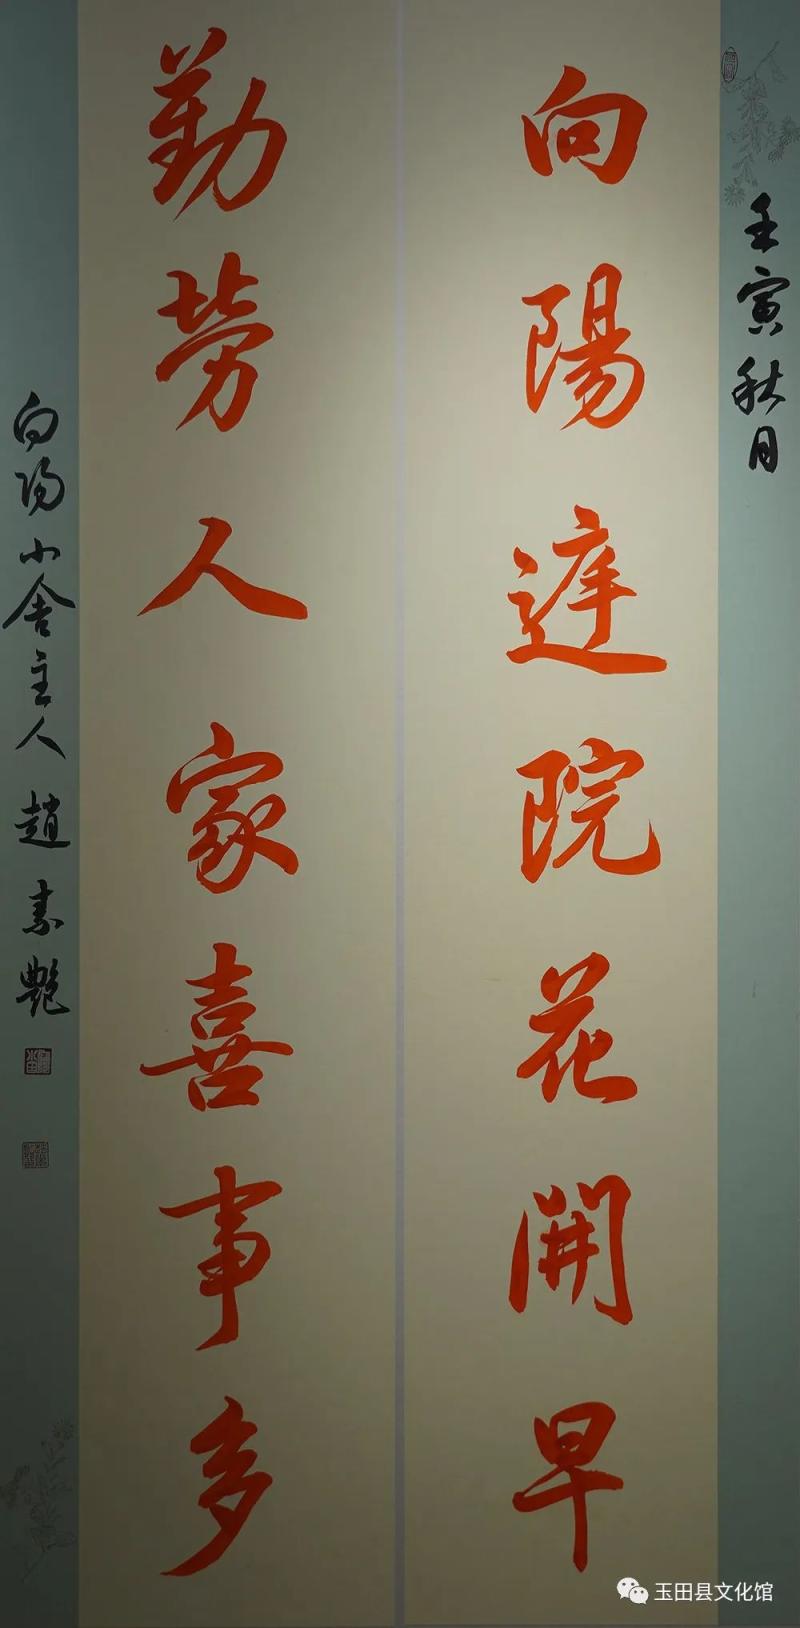 壬寅秋月
向陽庭院花開早
勤勞人家喜事多
向陽小舍主人趙素艷
玉田县文化馆